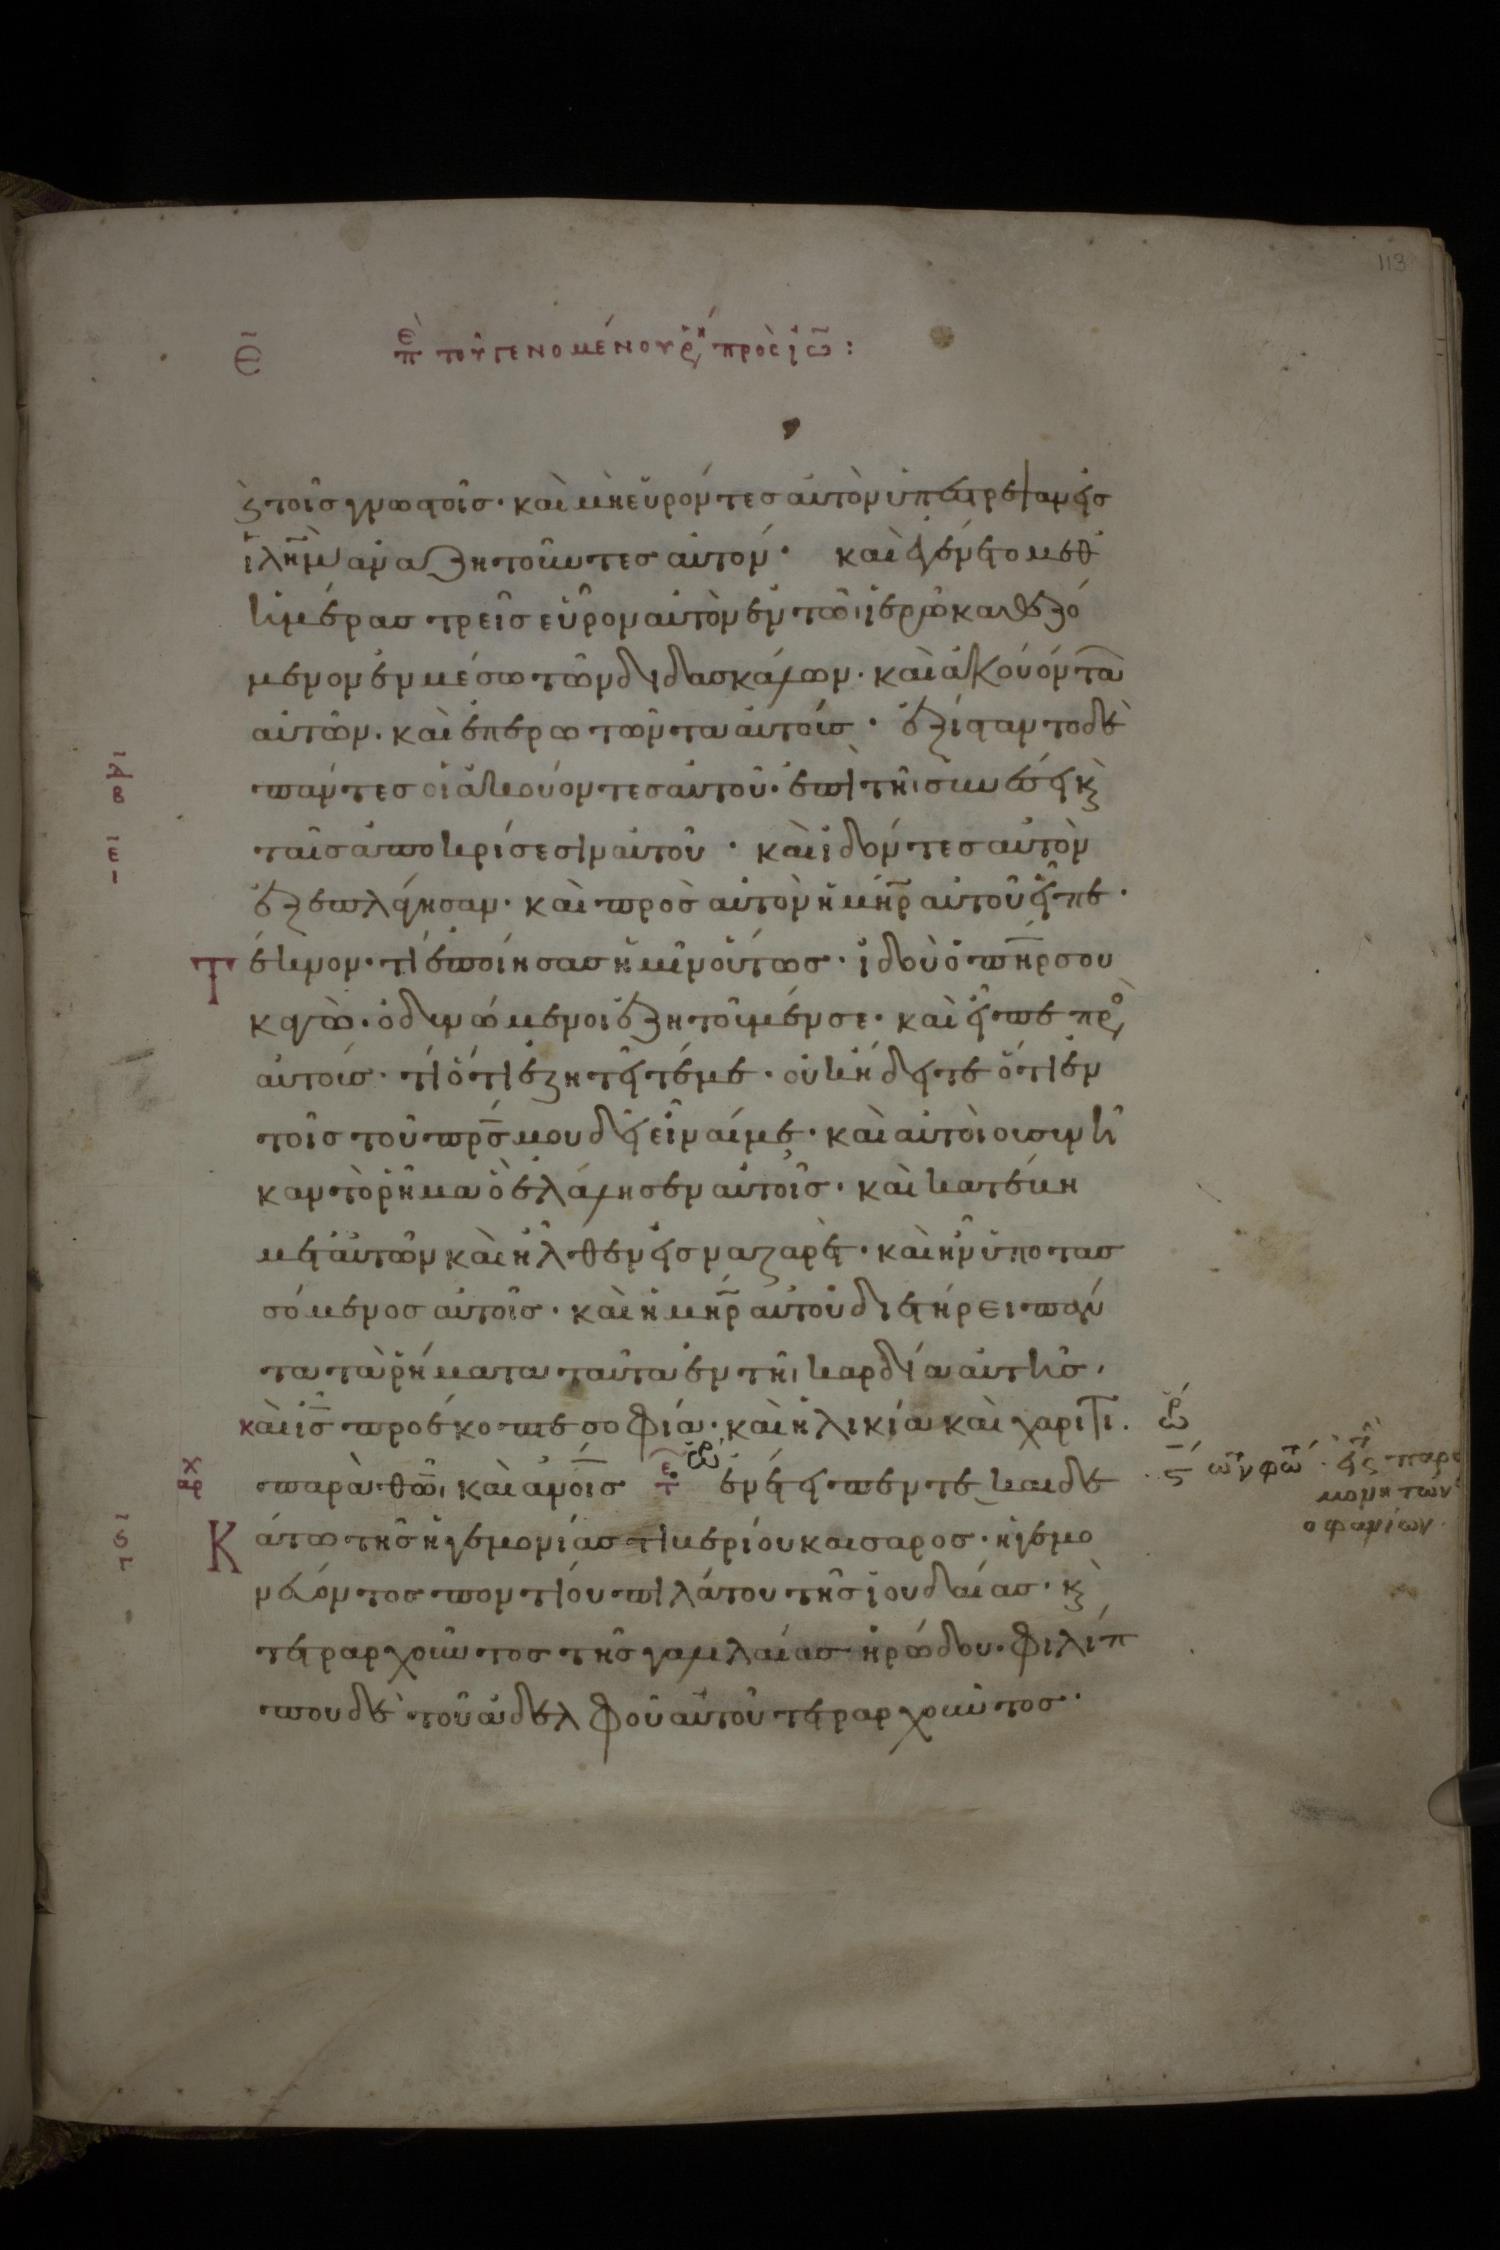 113
ε̄ ἐπ τοῦ γενομένου ῥή πρὸς ἰω̄:
κ̀ τοῖς γνωστοῖς· καὶ μὴ εὑρόντες αὐτὸν ὑπέστρεψαν εἰς
ἰλη̄μ ἀναζητοῦντες αὐτόν· καὶ ἐγένετο μεθ
ἡμέρας τρεῖς εὗρον αὐτὸν ἐν τῶι ἱερῶ καθεζό
μενον ἐν μέσω τῶν διδασκάλων· καὶ ἀκούοντα
αὐτῶν· καὶ ἐπερωτῶντα αὐτούς· ἐξίσταντο δὲ
πάντες οἱ ἀκούοντες αὐτοῦ· ἐπὶ τῆι συνέσει κ̀
ν̄β
ταῖς ἀποκρίσεσιν αὐτοῦ· καὶ ἰδόντες αὐτὸν
ε̄
ἐξεπλάγησαν· καὶ πρὸς αὐτὸν ἡ μη̄ρ αὐτοῦ εἶπε·
Τέκνον· τί ἐποίησας ἡμῖν οὕτως· ἰδοὺ ὁ πη̄ρ σου
κἀγὼ· ὀδυνώμενοι ἐζητοῦμέν σε· καὶ εἶπε πρὸ
αὐτούς· τί ὅτι ἐζητεῖτέ με· οὐκ ἤδειτε ὅτι ἐν
τοῖς τοῦ πρ̄ς μου δεῖ εἶναί με· καὶ αὐτοὶ οὐ συνῆ
καν τὸ ῥῆμα ὃ ἐλάλησεν αὐτοῖς· καὶ κατέβη
μετ αὐτῶν καὶ ἦλθεν εἰς ναζαρέτ· καὶ ἦν ὑποτασ
σόμενος αὐτοῖς· καὶ ἡ μη̄ρ αὐτοῦ διετήρει πάν
τα τὰ ῥήματα ταῦτα ἐν τῆι καρδία αὐτῆς·
καὶ ἰς̄ προέκοπτε σοφία· καὶ ἡλικία καὶ χάριτι·
παρὰ θω̄, καὶ ἀνοις̄ τε ἐν ἔτει πεντεκαιδε
Κάτω τῆς ἡγεμονίας τιβερίου καισαρος· ἡγεμο
νεύοντος ποντίου πιλάτου τῆς ἰουδαίας· κ̀
τετραρχοῦντος τῆς γαλιλαίας ἡρώδου· φιλίπ
που δὲ τοῦ ἀδελφοῦ αὐτοῦ τετραρχοῦντος·